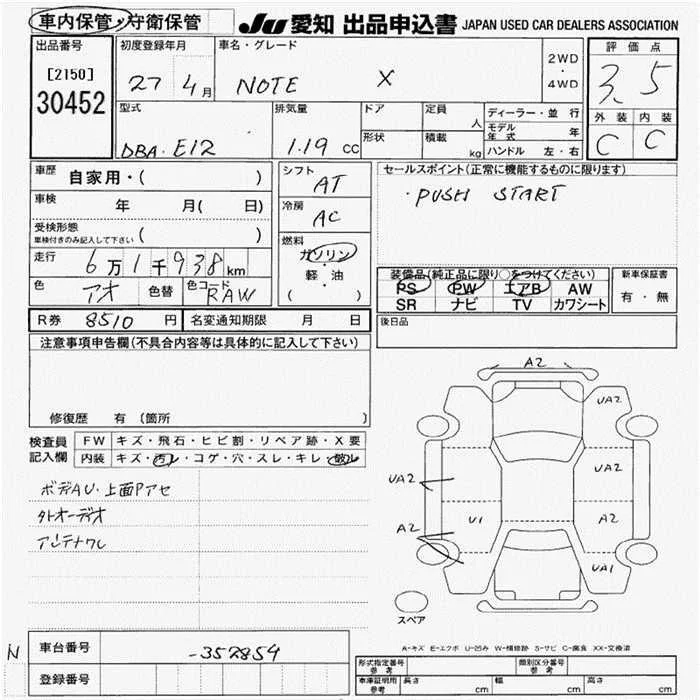 車内保管・守衛保管
JU 愛知 出品申込書 JAPAN USED CAR DEALERS ASSOCIATION
出品番号
[2150]
30452
初度登録年月
27 4月
車名・グレード
NOTE X
2WD
・
4WD
評価点
3.5
外装 内装
C C
型式
DBA-E12
排気量
1.19 cc
ドア
形状
定員
人
積載
kg
ディーラー・並行
モデル年式 年
ハンドル 左・右
車歴
自家用・( )
車検
年 月( 日)
受検形態
車検付きのみ記入して下さい ( )
走行
6万1千938km
色
アオ
色替
色コード
RAW
シフト
AT
冷房
AC
燃料
ガソリン
・
軽・油
( )
セールスポイント(正常に機能するものに限ります)
・PUSH START
装備品(純正品に限り○をつけてください)
PS PW エアB AW
SR ナビ TV カワシート
新車保証書
有・無
R券 8510 円
名変通知期限 月 日
後日品
注意事項申告欄(不具合内容等は具体的に記入して下さい)
修復歴 有(箇所 )
検査員
記入欄
FW キズ・飛石・ヒビ割・リペア跡・X要
内装 キズ・汚レ・コゲ・穴・スレ・キレ・
ボデAU・上面Pアセ
外オーディオ
アンテナワレ
A2
UA2
UA2
UA2
U1
A2
A2
UA1
スペア
A-キズ E-エクボ U-凹み W-補修跡 S-サビ C-腐食 XX-交換済
N
車台番号
-352854
登録番号
形式指定番号
参考
類別区分番号
参考
車庫証明用
参考
長さ cm
幅 cm
高さ cm